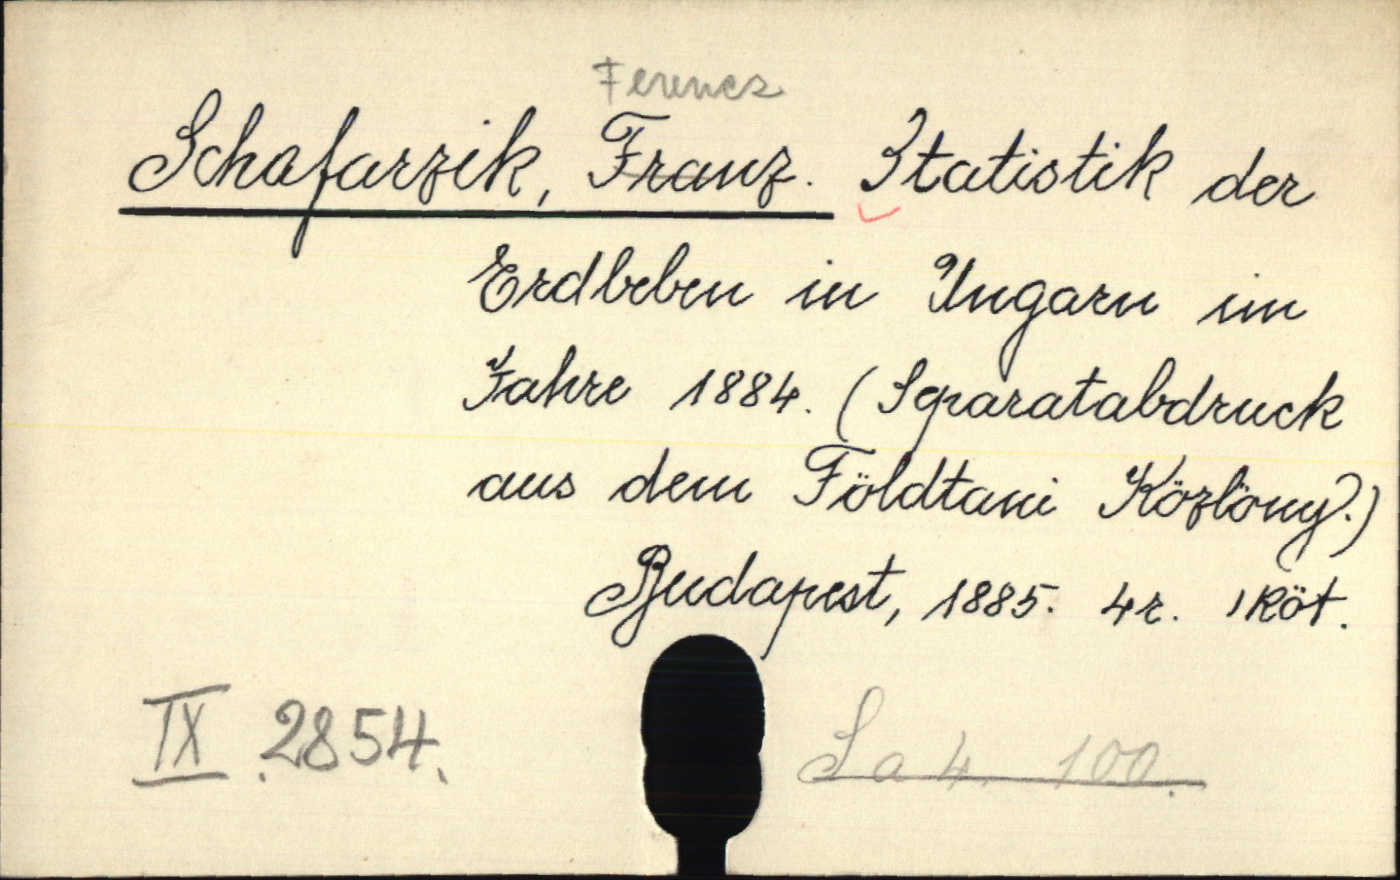 Ferencz
Schafarzik, Franz. Statistik der
Erdbeben in Ungarn im
Jahre 1884. (Separatabdruck
aus dem Földtani Közlöny.)
Budapest, 1885. 4r. 1 Köt.
IX. 2854.
La 4. 100.